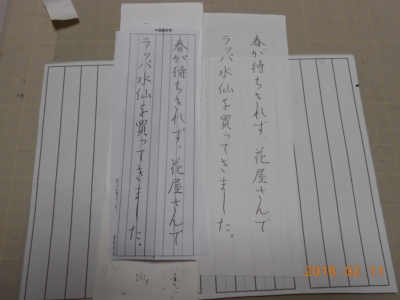 春が待ちきれず、花屋さんで
ラッパ水仙を買ってきました。
春が待ちきれず、花屋さんで
ラッパ水仙を買ってきました。
2018 02 11